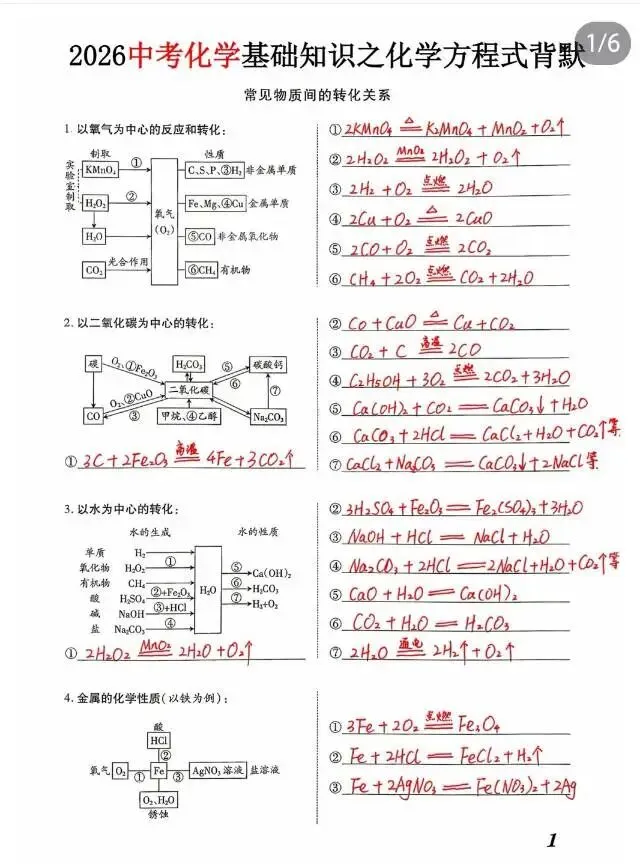 1/6
2026中考化学基础知识之化学方程式背默
常见物质间的转化关系
1. 以氧气为中心的反应和转化:
制取
性质
实验室制取
KMnO₄
①
C、S、P、③H₂
非金属单质
H₂O₂
②
氧气
(O₂)
Fe、Mg、④Cu
金属单质
H₂O
⑤CO
非金属氧化物
CO₂
光合作用
⑥CH₄
有机物
① 2KMnO₄ ≜ K₂MnO₄ + MnO₂ + O₂↑
② 2H₂O₂ MnO₂══ 2H₂O₂ + O₂↑
③ 2H₂ + O₂ 点燃══ 2H₂O
④ 2Cu + O₂ ≜ 2CuO
⑤ 2CO + O₂ 点燃══ 2CO₂
⑥ CH₄ + 2O₂ 点燃══ CO₂ + 2H₂O
2. 以二氧化碳为中心的转化:
碳
O₂、①Fe₂O₃
H₂CO₃
⑤
碳酸钙
⑥
二氧化碳
⑦
O₂、②CuO
③
CO
甲烷、④乙醇
Na₂CO₃
① 3C + 2Fe₂O₃ 高温══ 4Fe + 3CO₂↑
② Co + CuO ≜ Cu + CO₂
③ CO₂ + C 高温══ 2CO
④ C₂H₅OH + 3O₂ 点燃══ 2CO₂ + 3H₂O
⑤ Ca(OH)₂ + CO₂ ══ CaCO₃↓ + H₂O
⑥ CaCO₃ + 2HCl ══ CaCl₂ + H₂O + CO₂↑等
⑦ CaCl₂ + Na₂CO₃ ══ CaCO₃↓ + 2NaCl等
3. 以水为中心的转化:
水的生成
水的性质
单质 H₂
氧化物 H₂O₂ ①
有机物 CH₄
酸 H₂SO₄ ②+Fe₂O₃
碱 NaOH ③+HCl
盐 Na₂CO₃ ④
H₂O
⑤ Ca(OH)₂
⑥ H₂CO₃
⑦ H₂+O₂
① 2H₂O₂ MnO₂══ 2H₂O + O₂↑
② 3H₂SO₄ + Fe₂O₃ ══ Fe₂(SO₄)₃ + 3H₂O
③ NaOH + HCl ══ NaCl + H₂O
④ Na₂CO₃ + 2HCl ══ 2NaCl + H₂O + CO₂↑等
⑤ CaO + H₂O ══ Ca(OH)₂
⑥ CO₂ + H₂O ══ H₂CO₃
⑦ 2H₂O 通电══ 2H₂↑ + O₂↑
4. 金属的化学性质(以铁为例):
酸
HCl
②
氧气 O₂ ① Fe ③ AgNO₃ 溶液 盐溶液
O₂、H₂O
锈蚀
① 3Fe + 2O₂ 点燃══ Fe₃O₄
② Fe + 2HCl ══ FeCl₂ + H₂↑
③ Fe + 2AgNO₃ ══ Fe(NO₃)₂ + 2Ag
1